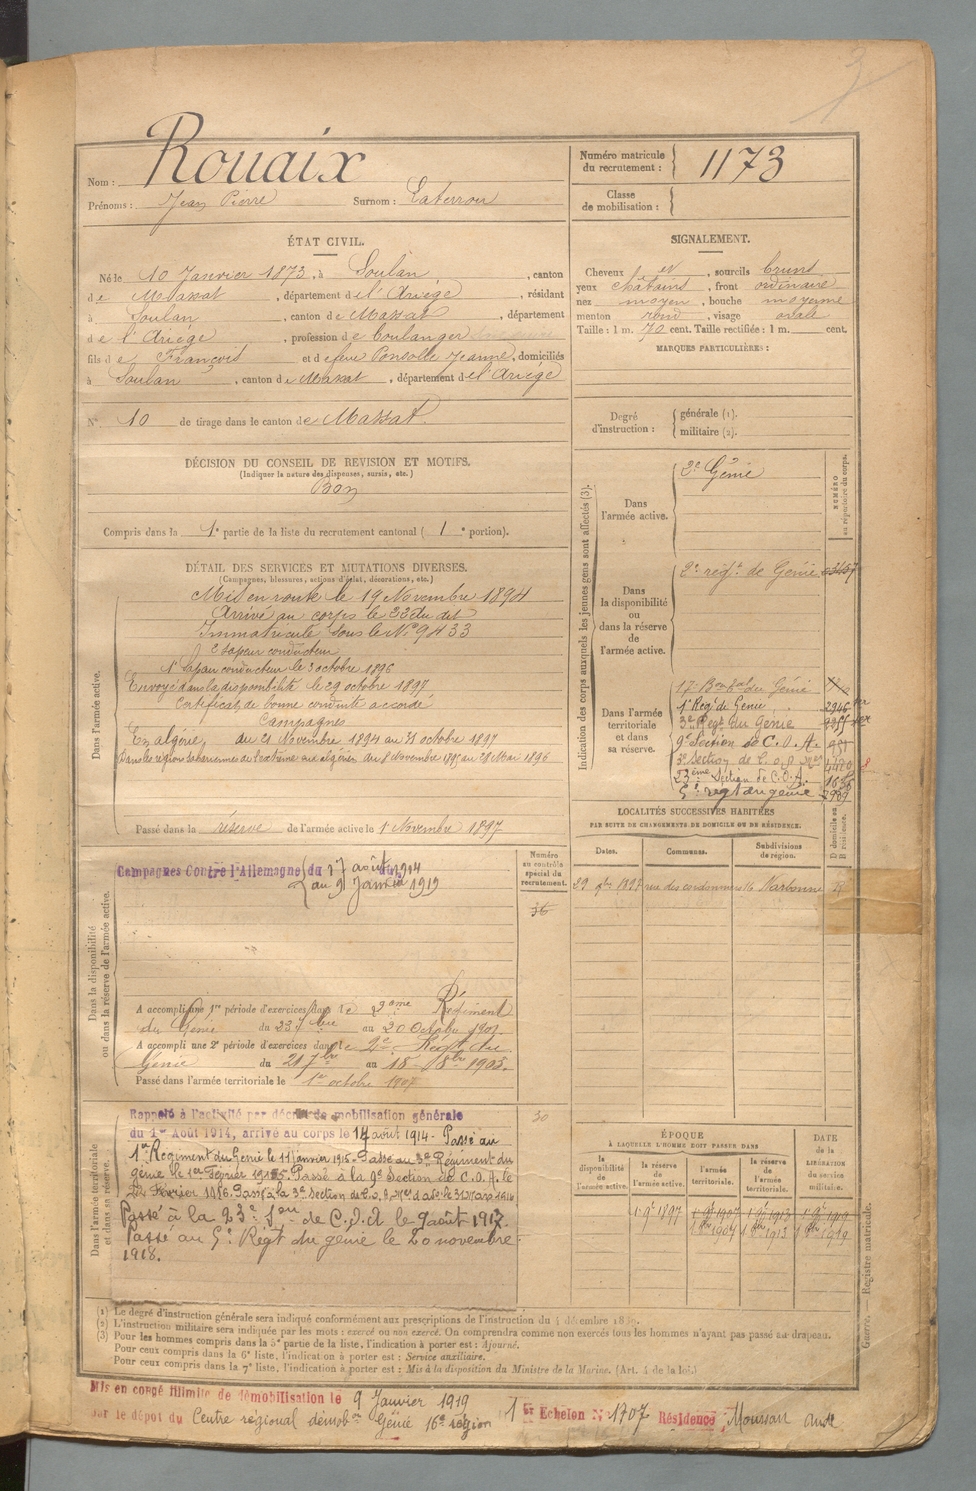 3
Nom : Rouaix
Prénoms : Jean Pierre Surnom : Laterrou
Numéro matricule du recrutement : 1173
Classe de mobilisation :
ÉTAT CIVIL.
Né le 10 Janvier 1873, à Soulan, canton
de Massat, département de l'Ariège, résidant
à Soulan, canton de Massat, département
de l'Ariège, profession de boulanger
fils de François et de feue Ponsolle Jeanne, domiciliés
à Soulan, canton de Massat, département de l'Ariège
N° 10 de tirage dans le canton de Massat
SIGNALEMENT.
Cheveux et, sourcils bruns
yeux châtains, front ordinaire
nez moyen, bouche moyenne
menton rond, visage ovale
Taille : 1 m. 70 cent. Taille rectifiée : 1 m. cent.
MARQUES PARTICULIÈRES :
Degré d'instruction : générale (1). militaire (2).
DÉCISION DU CONSEIL DE REVISION ET MOTIFS.
(Indiquer la nature des dispenses, sursis, etc.)
Bon
Compris dans la 1e partie de la liste du recrutement cantonal ( 1 e portion).
DÉTAIL DES SERVICES ET MUTATIONS DIVERSES.
(Campagnes, blessures, actions d'éclat, décorations, etc.)
Dans l'armée active.
Mis en route le 19 Novembre 1894
Arrivé au corps le 23 du dit
Immatriculé sous le N° 9433
2e sapeur conducteur
1er Sapeur conducteur le 3 octobre 1896
Envoyé dans la disponibilité le 29 octobre 1897
Certificat de bonne conduite accordé
Campagnes
En algérie, du 21 Novembre 1894 au 31 octobre 1897
du 8 Novembre 1895 au 28 Mai 1896
Passé dans la réserve de l'armée active le 1 Novembre 1897
Indication des corps auxquels les jeunes gens sont affectés (3).
NUMÉRO au répertoire du corps.
Dans l'armée active.
2e Génie
Dans la disponibilité ou dans la réserve de l'armée active.
2e régt de Génie
Dans l'armée territoriale et dans sa réserve.
17e Bon du Génie
1er Régt de Génie 2946
3e Regt du Génie
9e Section de C.O.A.
3e Section de C.O.A.
23ème Section de C.O.A. 1636
5e regt du génie 2989
LOCALITÉS SUCCESSIVES HABITÉES
PAR SUITE DE CHANGEMENTS DE DOMICILE OU DE RÉSIDENCE.
Dates. Communes. Subdivisions de région. D domicile ou R résidence.
29 9bre 1897 rue des Narbonne R
Dans la disponibilité ou dans la réserve de l'armée active.
Numéro au contrôle spécial du recrutement.
36
Campagnes Contre l'Allemagne du 17 août 1914
au 9 Janvier 1919
A accompli une 1re période d'exercices dans le 2ème Régiment
du Génie du 23 7bre au 20 Octobre 1901.
A accompli une 2e période d'exercices dans le 2e Régt du
Génie du 21 7bre au 18 8bre 1905.
Passé dans l'armée territoriale le 1er octobre 1907
Dans l'armée territoriale et dans sa réserve.
30
Rappelé à l'activité par décret de mobilisation générale
du 1er Août 1914, arrivé au corps le 17 août 1914 - Passé au
1er Régiment du Génie le 11 janvier 1915. Passé au 3e Régiment du
génie le 1er Février 1915. Passé à la 9e Section de C.O.A. le
Février 1916. Passé à la 3e Section de C.O.A.
Passé à la 23e Son de C.O.A le 9 août 1917.
Passé au 5e Régt du génie le 20 novembre
1918.
ÉPOQUE
À LAQUELLE L'HOMME DOIT PASSER DANS
la disponibilité de l'armée active. la réserve de l'armée active. l'armée territoriale. la réserve de l'armée territoriale. DATE DE LA LIBÉRATION du service militaire.
1 9e 1897 1 9e 1907 1 9e 1913 1 9e 1919
1 8bre 1907 1 8bre 1913 1 8bre 1919
Guerre. — Registre matricule.
(1) Le degré d'instruction générale sera indiqué conformément aux prescriptions de l'instruction du 4 décembre 1889.
(2) L'instruction militaire sera indiquée par les mots : exercé ou non exercé. On comprendra comme non exercés tous les hommes n'ayant pas passé au drapeau.
(3) Pour les hommes compris dans la 5e partie de la liste, l'indication à porter est : Ajourné.
Pour ceux compris dans la 6e liste, l'indication à porter est : Service auxiliaire.
Pour ceux compris dans la 7e liste, l'indication à porter est : Mis à la disposition du Ministre de la Marine. (Art. 4 de la loi.)
Mis en congé illimité de démobilisation le 9 Janvier 1919
par le dépôt du Centre régional démobon Génie 16e région 1er Echelon N° 1707 Résidence Moussan Aude